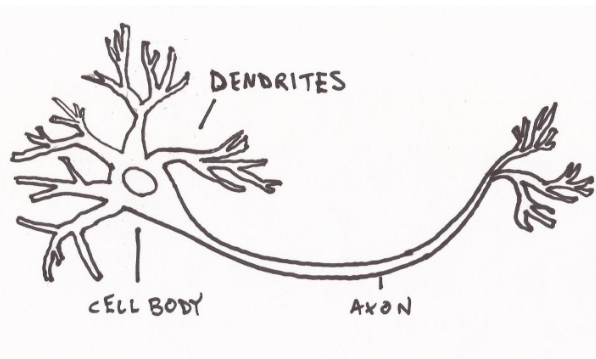 DENDRITES
CELL BODY
AXON